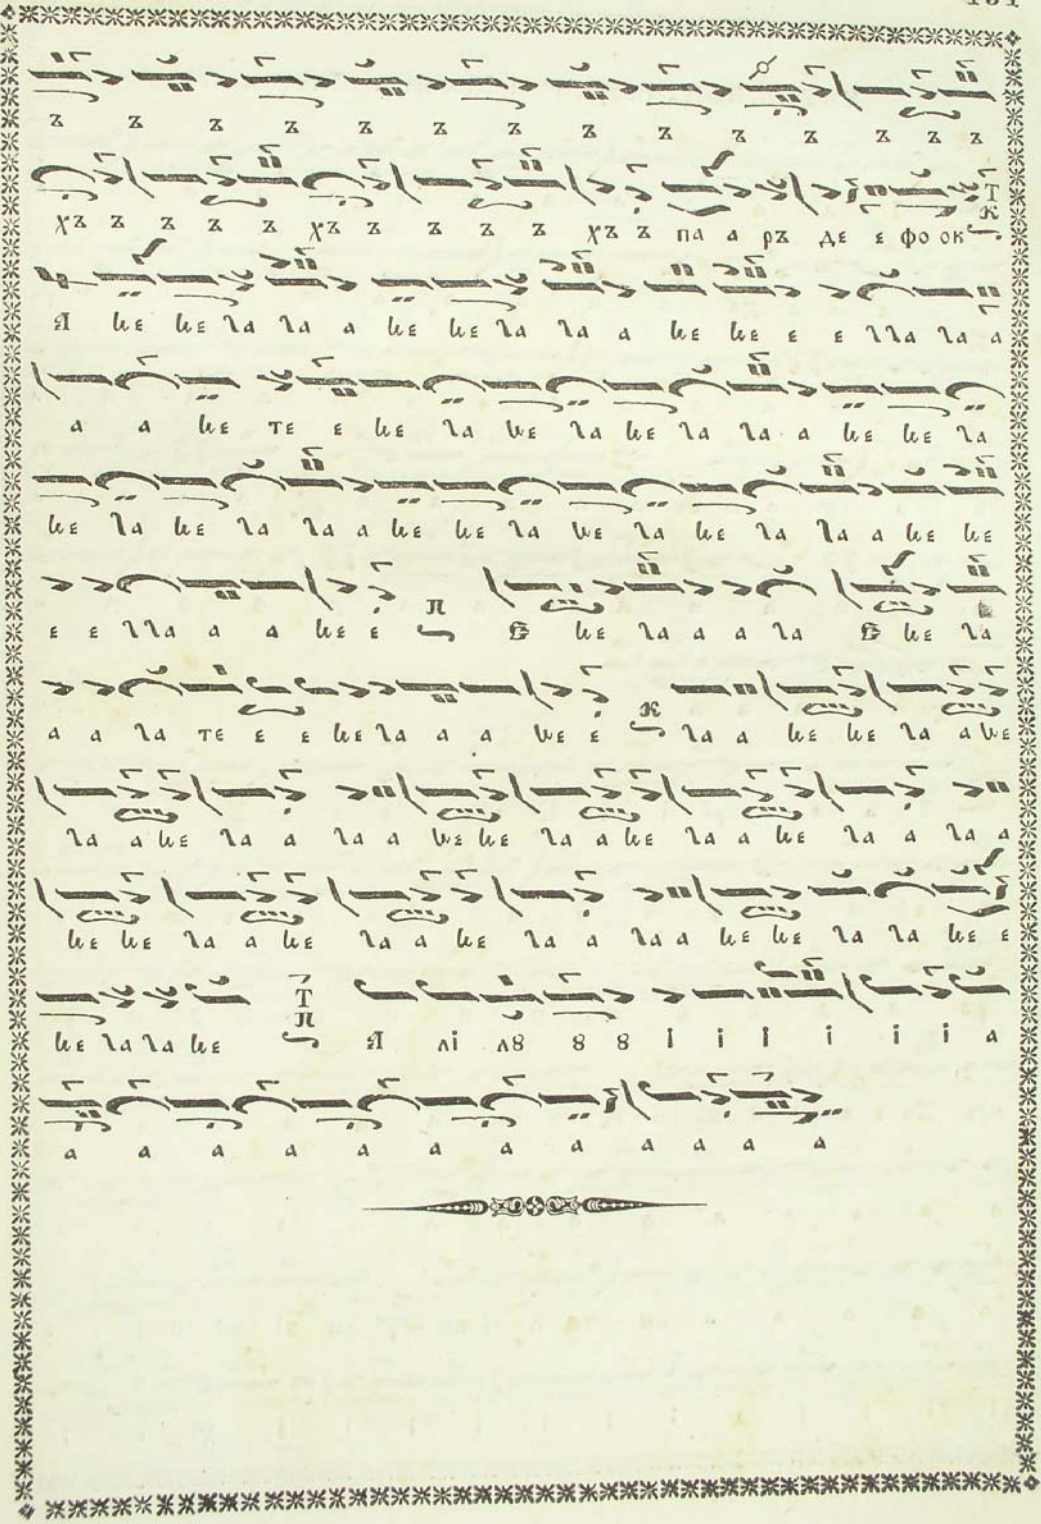 ꙁ ꙁ ꙁ ꙁ ꙁ ꙁ ꙁ ꙁ ꙁ ꙁ ꙁ ꙁ ꙁ ꙁ
хꙁ ꙁ ꙁ ꙁ ꙁ хꙁ ꙁ ꙁ ꙁ ꙁ хꙁ ꙁ па а рꙁ де е фо ок
Т к
Я ке ке ла ла а ке ке ла ла а ке ке е е лла ла а
а а ке те е ке ла ке ла ке ла ла а ке ке ла
ке ла ке ла ла а ке ке ла ке ла ке ла ла а ке ке
е е лла а а ке е п В ке ла а а ла В ке ла
а а ла те е е ке ла а а ке е к ла а ке ке ла а ке
ла а ке ла а ла а ке ке ла а ке ла а ке ла а ла а
ке ке ла а ке ла а ке ла а ла а ке ке ла ла ке е
ке ла ла ке Т п Я лі лȣ ȣ ȣ і і і і і і а
а а а а а а а а а а а а